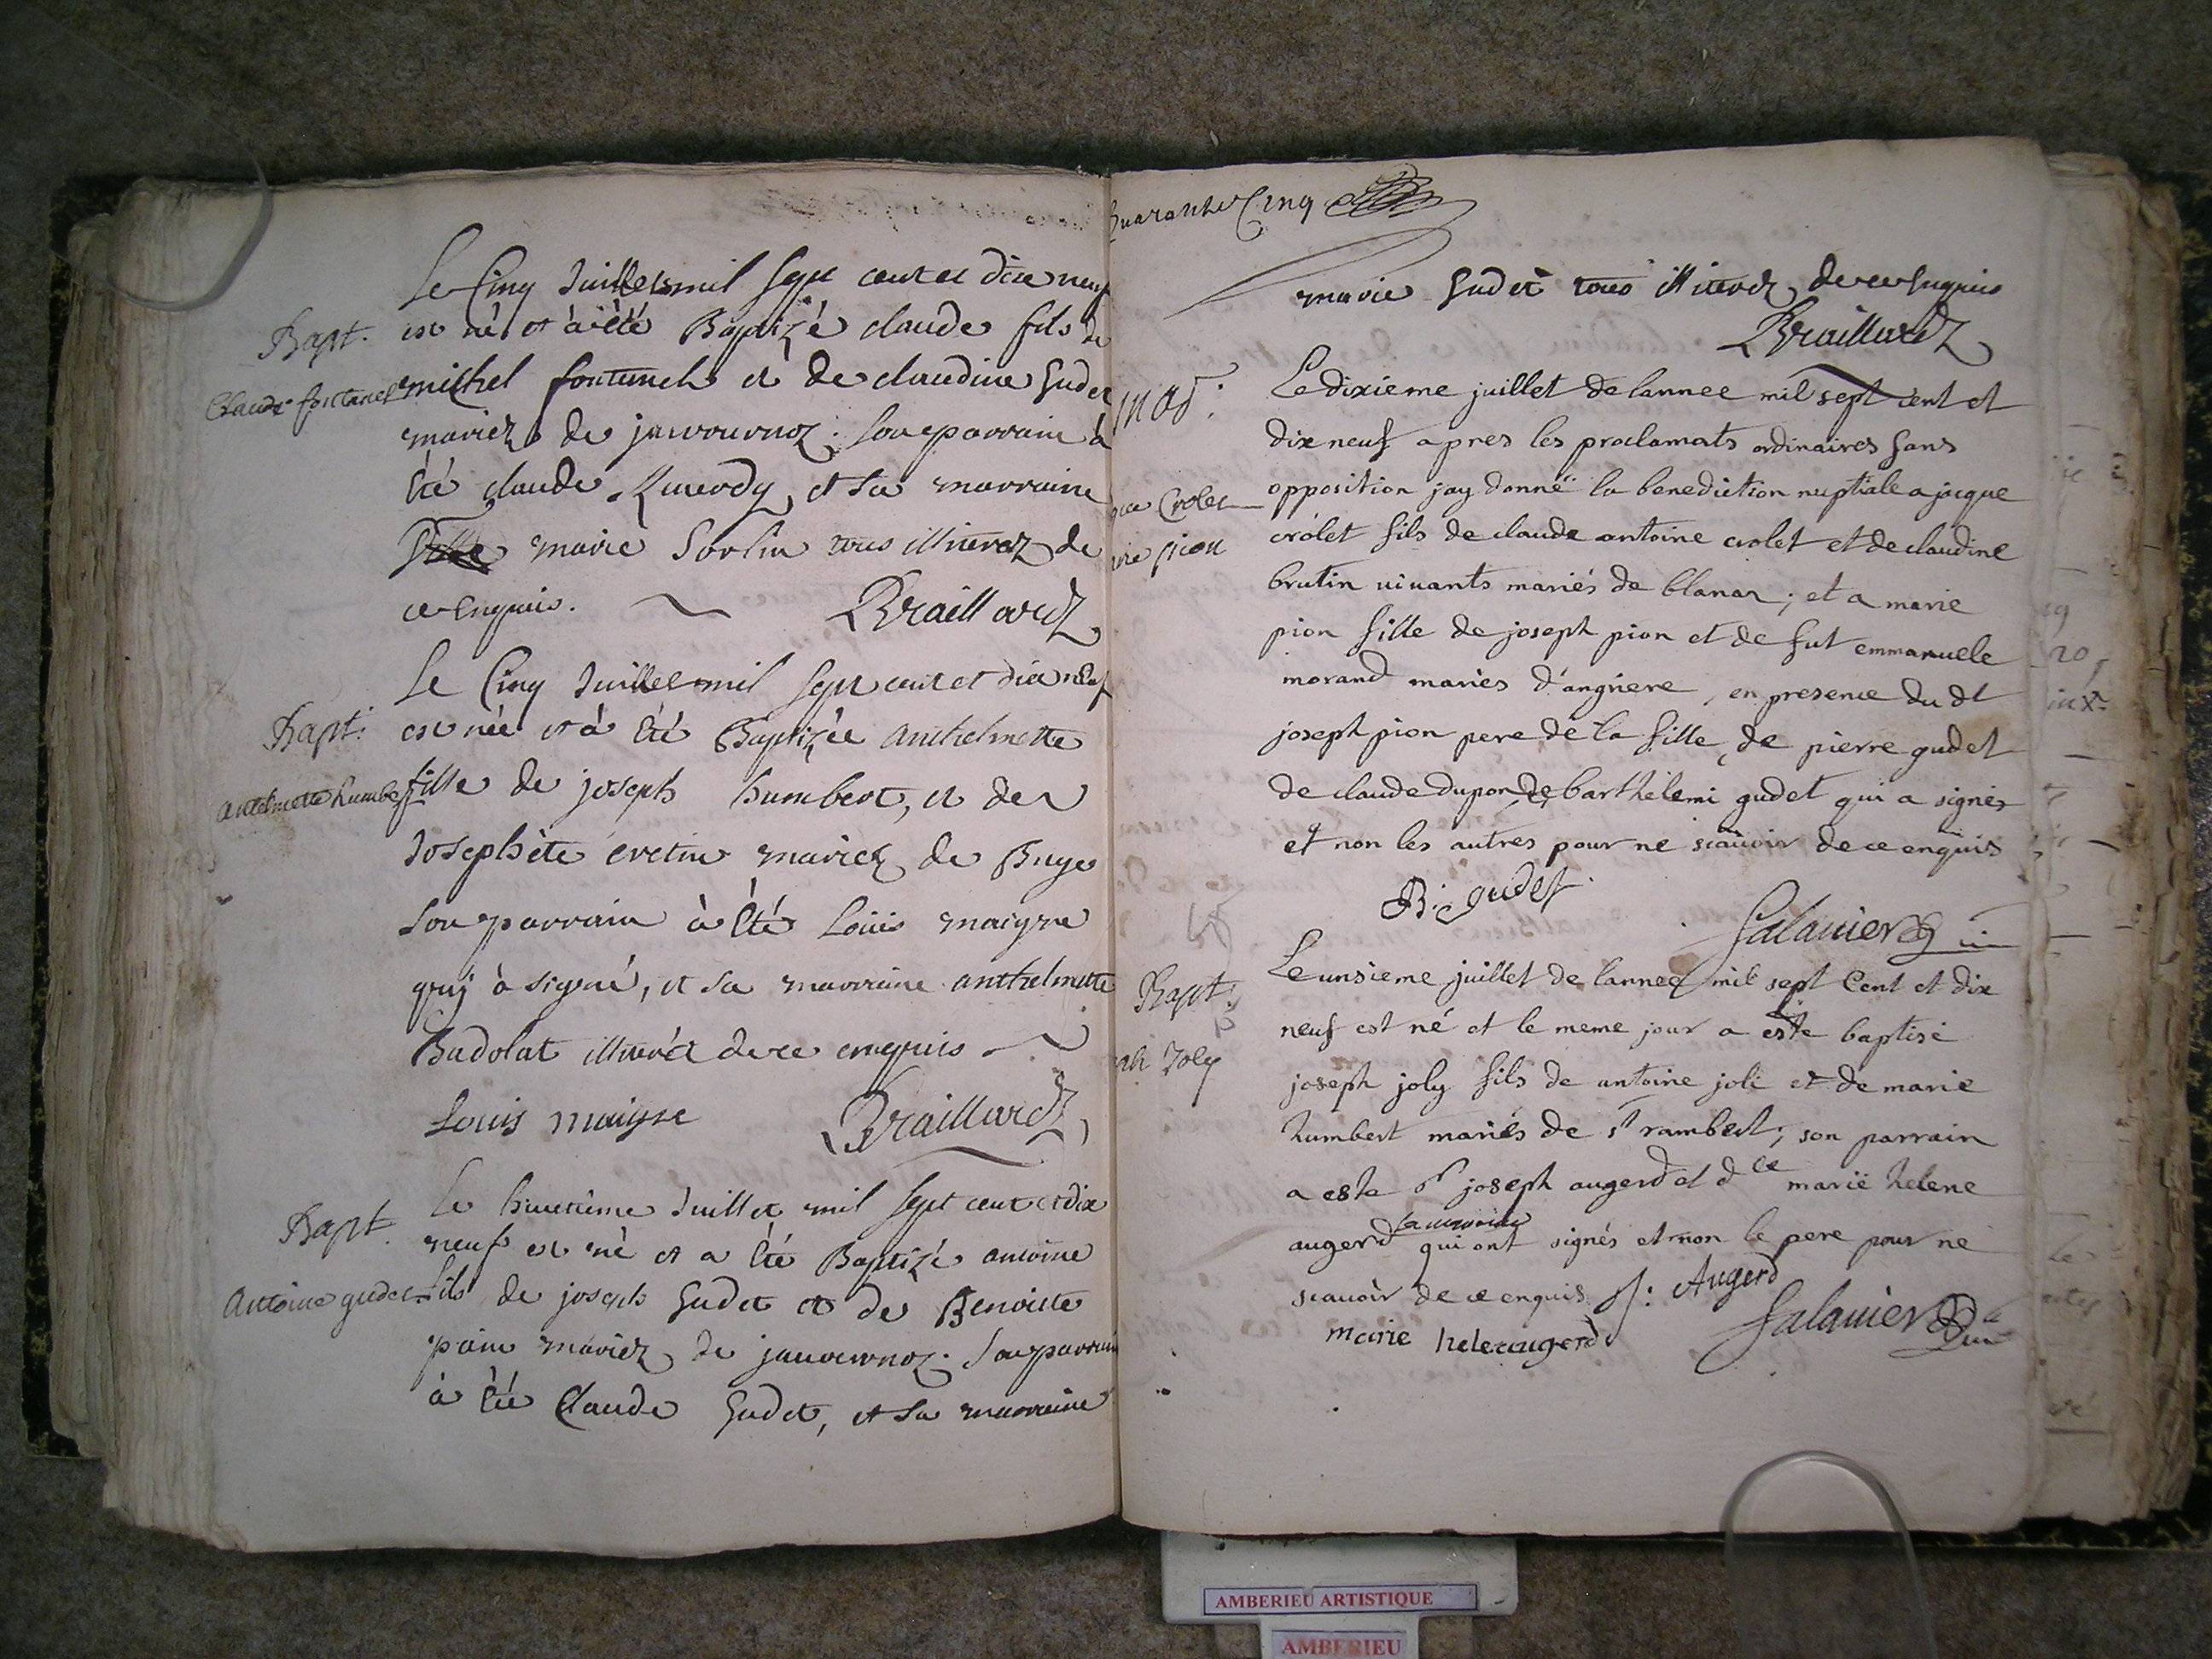 Le Cinq Juillet mil sept cent et dix neuf
Bapt. est né et à été Baptizé claude fils de
Claude fontanel michel fontanel et de claudine Gudet
mariez de javournoz. Son parrain à
été claude et sa marraine
marie Sorlin tous illiterez de
ce Enquis. Braillard
Le Cinq Juillet mil sept cent et dix neuf
Bapt: est née et à été Baptizée anthelmette
antelmette humbert fille de joseph humbert, et de
Josephète mariez de Buge
Son parrain à été Louis maigre
quj à signé, et sa marraine anthelmette
Badolat illiteré de ce enquis
Louis maigre Braillard
Le huitième Juillet mil sept cent et dix
Bapt. neuf est né et a été Baptizé antoine
Antoine gudet fils de joseph Gudet et de Benoiste
mariez de javournoz. Son parrain
à été Claude Gudet, et sa marraine
quarante Cinq
marie Gudet tous illiterez de ce Enquis
Braillard
mar: Le dixieme juillet de lannee mil sept cent et
dix neuf apres les proclamats ordinaires sans
Crolet opposition jay donné la benediction nuptiale a jacque
pion crolet fils de claude antoine crolet et de claudine
brutin vivants mariés de blanaz; et a marie
pion fille de joseph pion et de fut emmanuele
morand mariés d'angriere, en presence du dt
joseph pion pere de la fille, de pierre gudet
de claude dupon, de barthelemi gudet qui a signéz
et non les autres pour ne scavoir de ce enquis
B: gudet
Galavier
Le unsieme juillet de lannee mil sept Cent et dix
Bapt: neuf est né et le meme jour a este baptisé
Joly joseph joly fils de antoine joli et de marie
humbert mariés de st rambert; son parrain
a este sr joseph augerd et dlle marie helene
augerd sa marraine qui ont signés et non le pere pour ne
scavoir de ce enquis J: Augerd
marie hele augerd Galavier
AMBERIEU ARTISTIQUE
AMBERIEU